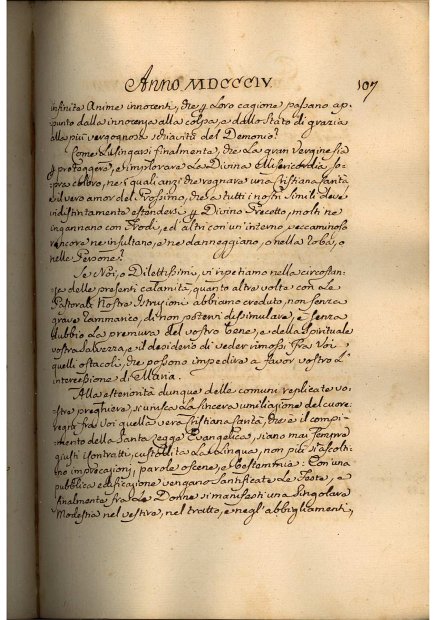 Anno MDCCCIV 107
infinite Anime innocenti, che p Loro cagione possano ap-
punto dalla innocenza alla colpa, e dallo stato di grazia
alla più vergognosa schiavitù del Demonio?
Come Lusingarsi finalmente, che La gran Vergine sia
p proteggere, e implorare La Divina Misericordia so-
pra coloro, ne' quali anzi che regnare una Cristiana Carità
e il vero amor del Prossimo, che a tutti i nostri simili deve
indistintamente estendersi p Divino Precetto, molti ne
ingannano con Frodi, ed altri con un'interno peccaminoso
rancore ne insultano, e ne danneggiano, o nella roba, o
nelle Persone?
Se Noi, o Dilettissimi, vi ripetiamo nella circostan-
za delle presenti calamità, quanto altre volte con Le
Pastorali Nostre Istruzioni abbiamo creduto, non senza
grave rammarico, di non potervi dissimulare, è senza
dubbio La premura del vostro bene, e della spirituale
vostra salvezza, e il desiderio di veder rimossi fra Voi
quelli ostacoli, che possono impedire a favor vostro L'
intercessione di Maria.
Alla esteriorità dunque delle comuni replicate vo-
stre preghiere si unisca La sincera umiliazione del cuore:
regni fra Voi quella vera Cristiana Carità, che è il compi-
mento della Santa Legge Evangelica, siano mai sempre
giusti i contratti, custodita La Lingua, non più si ascolti-
no imprecazioni, parole oscene, e bestemmie: Con una
pubblica edificazione vengano santificate Le Feste, e
finalmente fra Le Donne si manifesti una singolare
Modestia nel vestire, nel tratto, e negl'abbigliamenti,